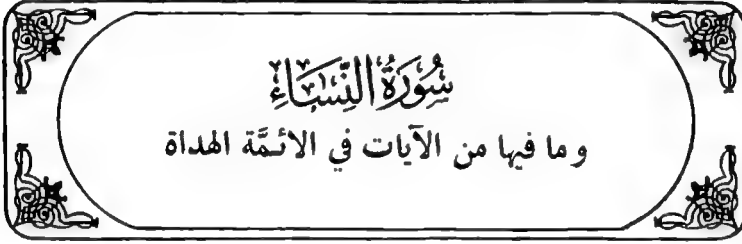 سُورَةُ النِّسَاءِ
و ما فيها من الآيات في الائمَّة الهداة